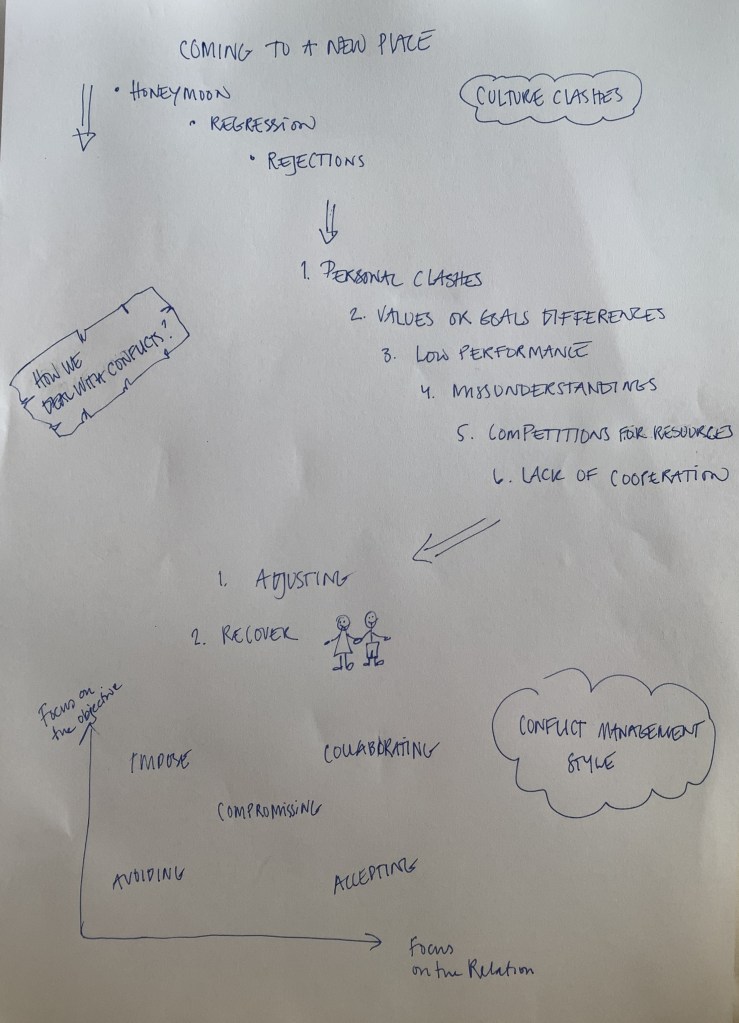 COMING TO A NEW PLACE
• HONEYMOON
• REGRESSION
• REJECTIONS
CULTURE CLASHES
1. PERSONAL CLASHES
2. VALUES OR GOALS DIFFERENCES
3. LOW PERFORMANCE
4. MISSUNDERSTANDINGS
5. COMPETITIONS FOR RESOURCES
6. LACK OF COOPERATION
HOW WE
DEAL WITH CONFLICTS?
1. ADJUSTING
2. RECOVER
Focus on
the objective
IMPOSE
COLLABORATING
COMPROMISSING
AVOIDING
ACCEPTING
CONFLICT MANAGEMENT
STYLE
Focus
on the Relation